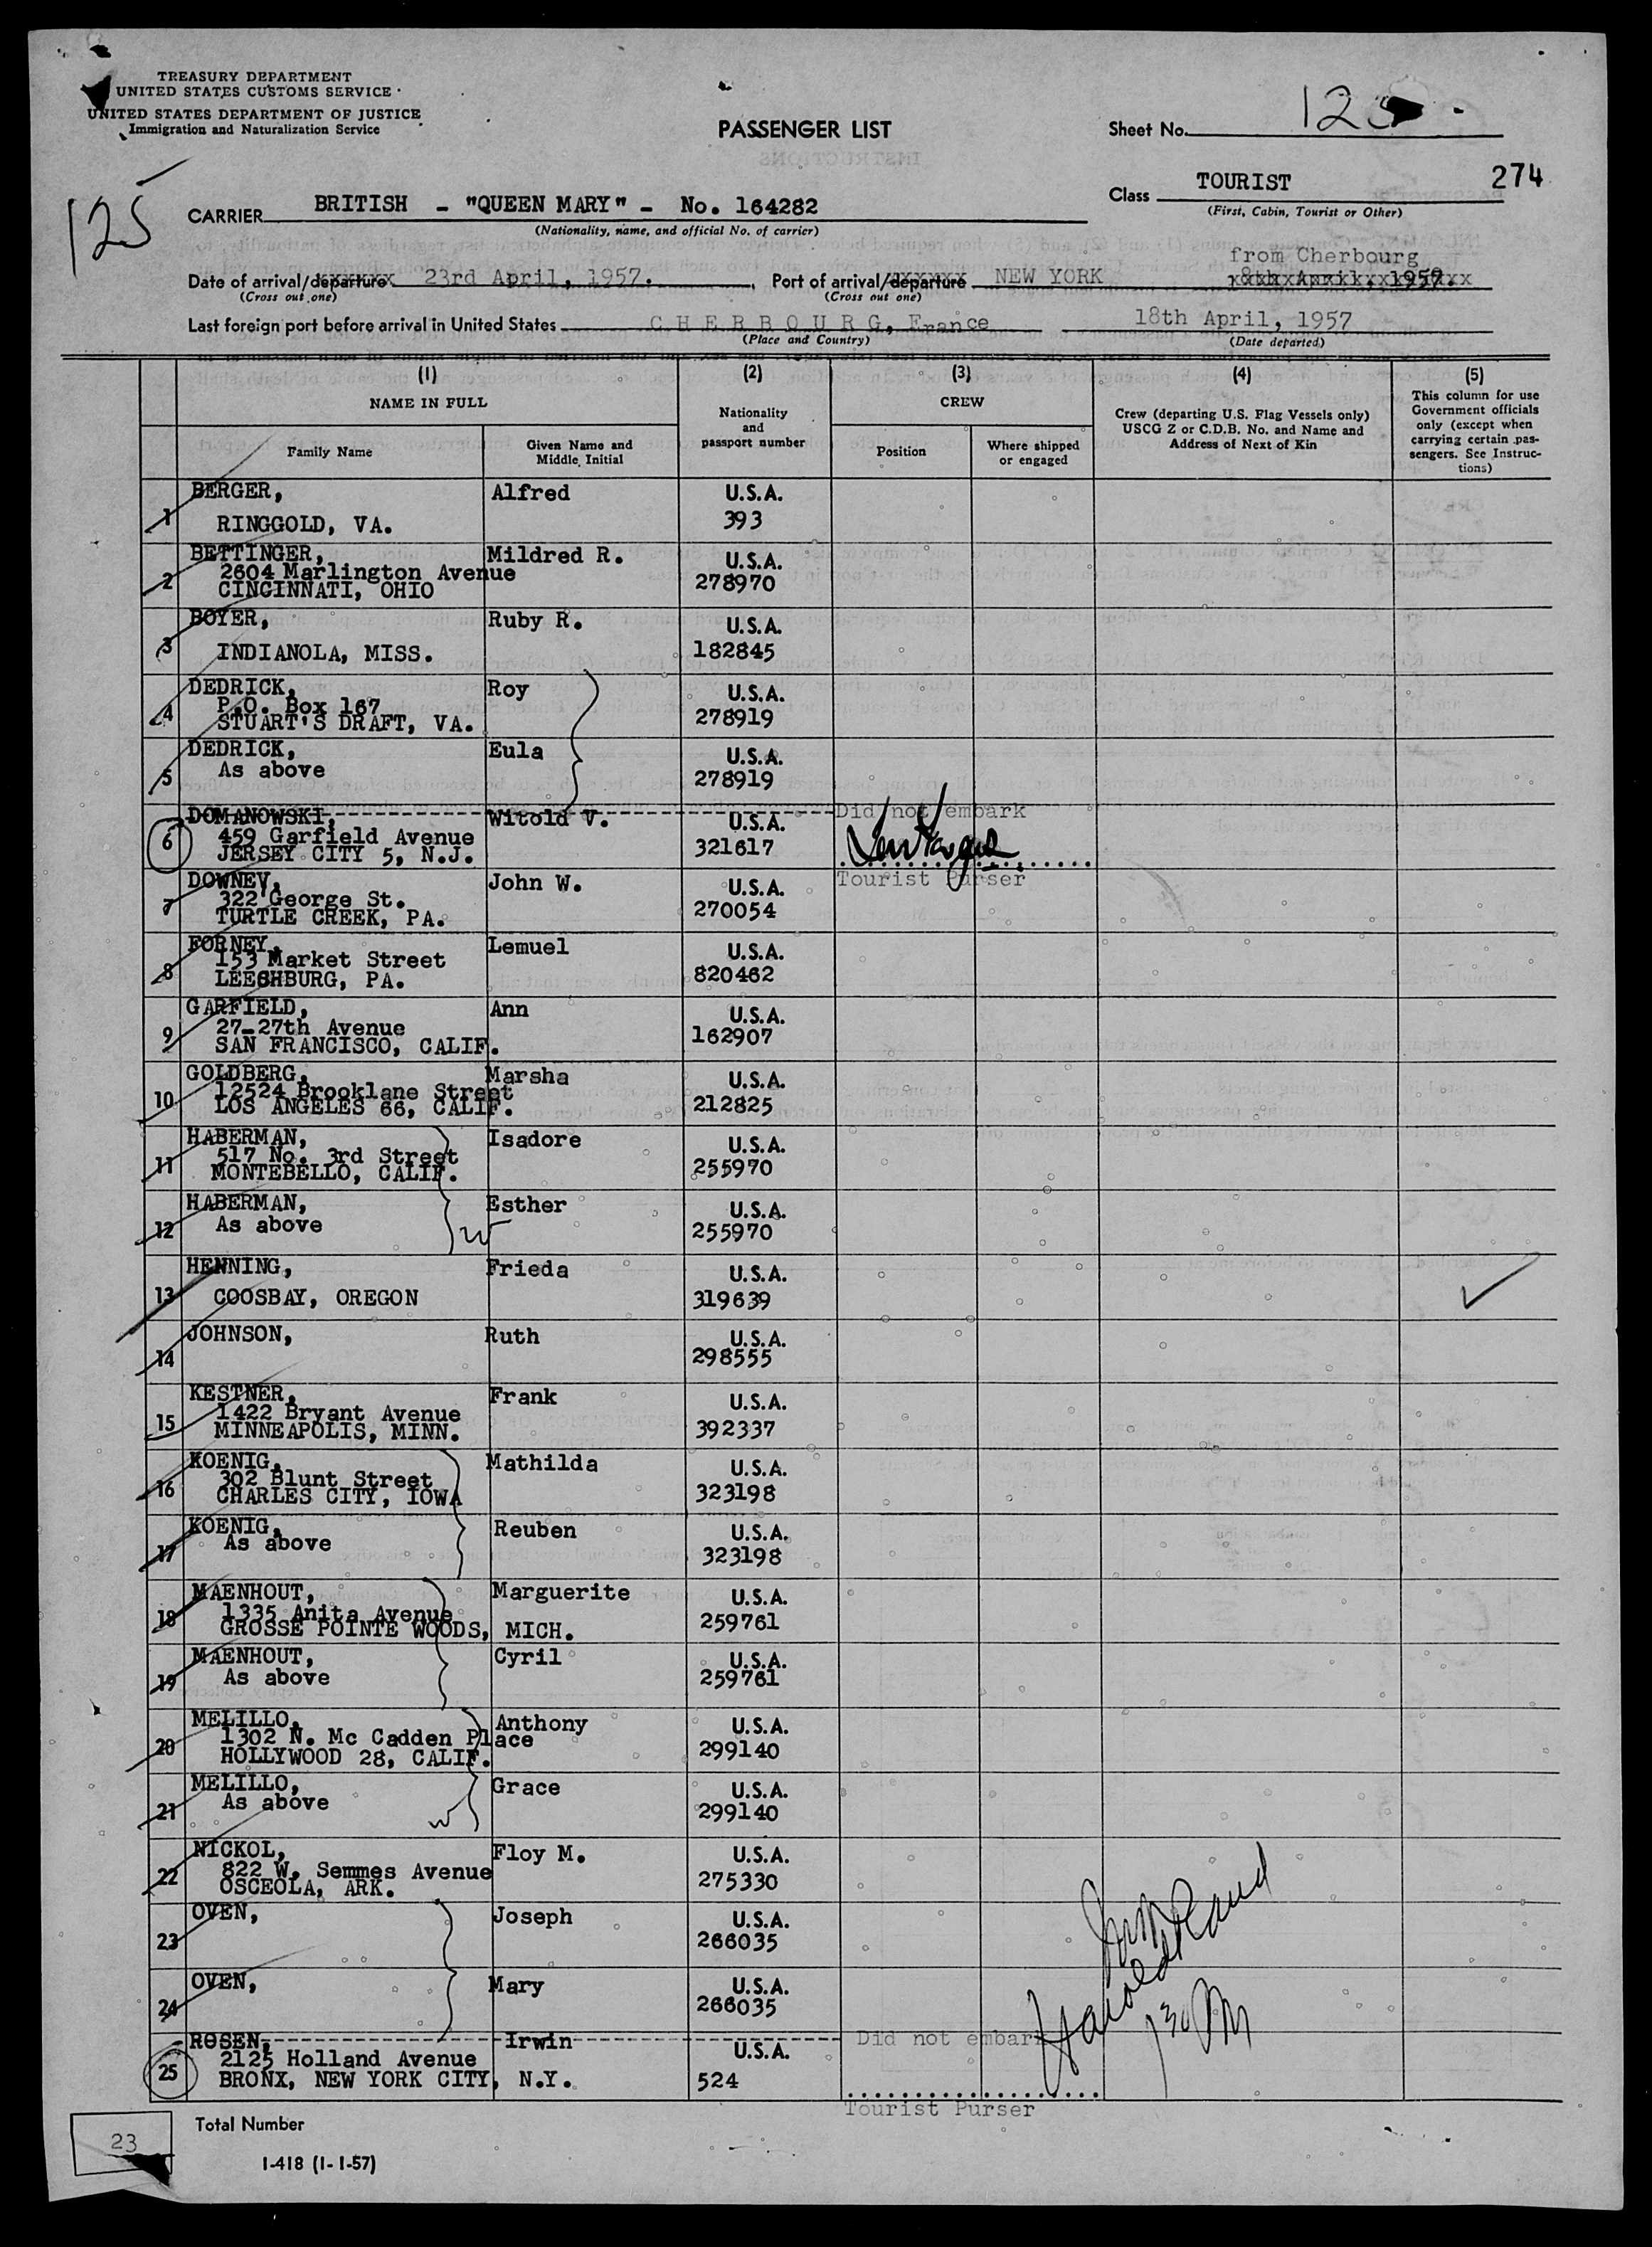 TREASURY DEPARTMENT
UNITED STATES CUSTOMS SERVICE
UNITED STATES DEPARTMENT OF JUSTICE
Immigration and Naturalization Service
PASSENGER LIST
Sheet No. 125
125
274
Class TOURIST
(First, Cabin, Tourist or Other)
CARRIER BRITISH - "QUEEN MARY" - No. 164282
(Nationality, name, and official No. of carrier)
from Cherbourg
Date of arrival/departure 23rd April, 1957. Port of arrival/departure NEW YORK 8th April, 1957.
(Cross out one) (Cross out one)
Last foreign port before arrival in United States CHERBOURG, France 18th April, 1957
(Place and Country) (Date departed)
(1) (2) (3) (4) (5)
NAME IN FULL
Family Name
Given Name and Middle Initial
Nationality and passport number
CREW
Position
Where shipped or engaged
Crew (departing U.S. Flag Vessels only) USCG Z or C.D.B. No. and Name and Address of Next of Kin
This column for use Government officials only (except when carrying certain pas-sengers. See Instruc-tions)
1 BERGER, Alfred U.S.A.
RINGGOLD, VA. 393
2 BETTINGER, Mildred R. U.S.A.
2604 Marlington Avenue
CINCINNATI, OHIO 278970
3 BOYER, Ruby R. U.S.A.
INDIANOLA, MISS. 182845
4 DEDRICK, Roy U.S.A.
P.O. Box 167
STUART'S DRAFT, VA. 278919
5 DEDRICK, Eula U.S.A.
As above 278919
6 DOMANOWSKI, Witold V. U.S.A. Did not embark
459 Garfield Avenue
JERSEY CITY 5, N.J. 321617
Tourist Purser
7 DOWNEY, John W. U.S.A.
322 George St.
TURTLE CREEK, PA. 270054
8 FORNEY, Lemuel U.S.A.
153 Market Street
LEECHBURG, PA. 820462
9 GARFIELD, Ann U.S.A.
27-27th Avenue
SAN FRANCISCO, CALIF. 162907
10 GOLDBERG, Marsha U.S.A.
12524 Brooklane Street
LOS ANGELES 66, CALIF. 212825
11 HABERMAN, Isadore U.S.A.
517 No. 3rd Street
MONTEBELLO, CALIF. 255970
12 HABERMAN, Esther U.S.A.
As above W 255970
13 HENNING, Frieda U.S.A.
COOSBAY, OREGON 319639
14 JOHNSON, Ruth U.S.A.
298555
15 KESTNER, Frank U.S.A.
1422 Bryant Avenue
MINNEAPOLIS, MINN. 392337
16 KOENIG, Mathilda U.S.A.
302 Blunt Street
CHARLES CITY, IOWA 323198
17 KOENIG, Reuben U.S.A.
As above 323198
18 MAENHOUT, Marguerite U.S.A.
1335 Anita Avenue
GROSSE POINTE WOODS, MICH. 259761
19 MAENHOUT, Cyril U.S.A.
As above 259761
20 MELILLO, Anthony U.S.A.
1302 N. Mc Cadden Place
HOLLYWOOD 28, CALIF. 299140
21 MELILLO, Grace U.S.A.
As above W 299140
22 NICKOL, Floy M. U.S.A.
822 W. Semmes Avenue
OSCEOLA, ARK. 275330
23 OVEN, Joseph U.S.A.
266035
24 OVEN, Mary U.S.A.
266035
25 ROSEN, Irwin U.S.A. Did not embark
2125 Holland Avenue
BRONX, NEW YORK CITY, N.Y. 524
Tourist Purser
Total Number
23
I-418 (1-1-57)